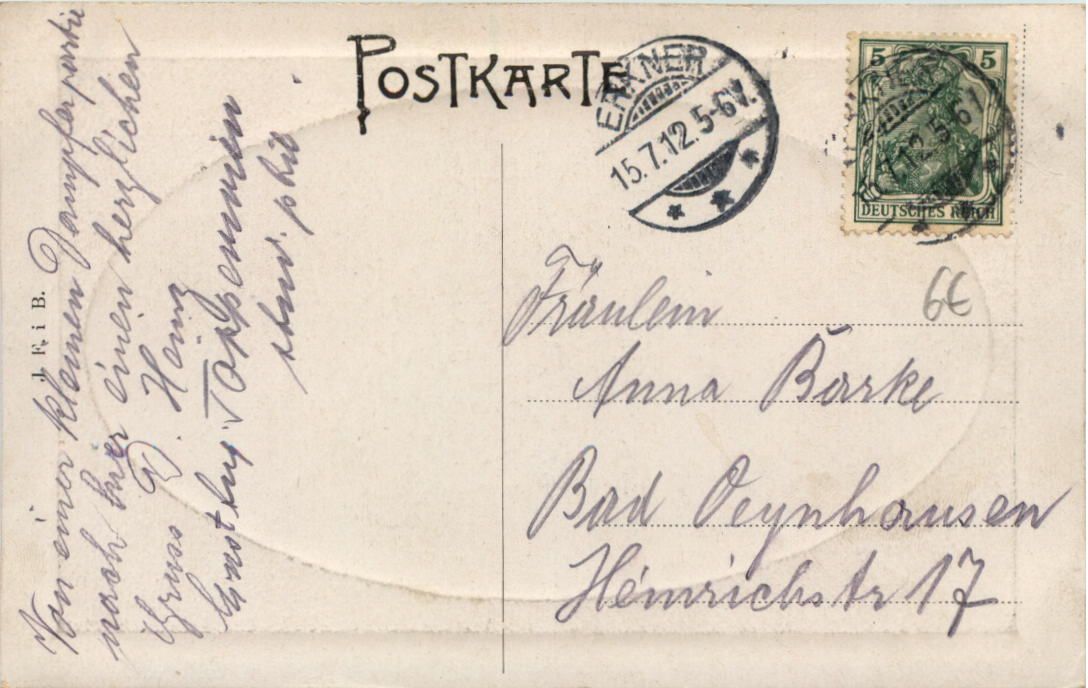 POSTKARTE
ERKNER
15.7.12.5-6V.
5 5
DEUTSCHES REICH
6€
Fräulein
Anna Barke
Bad Oeynhausen
Heinrichstr 17
J. E. i B.
Von einer kleinen Dampferpartie
nach hier einen herzlichen
Gruss D. Heinz
Gustav Toppermien
stud. phil